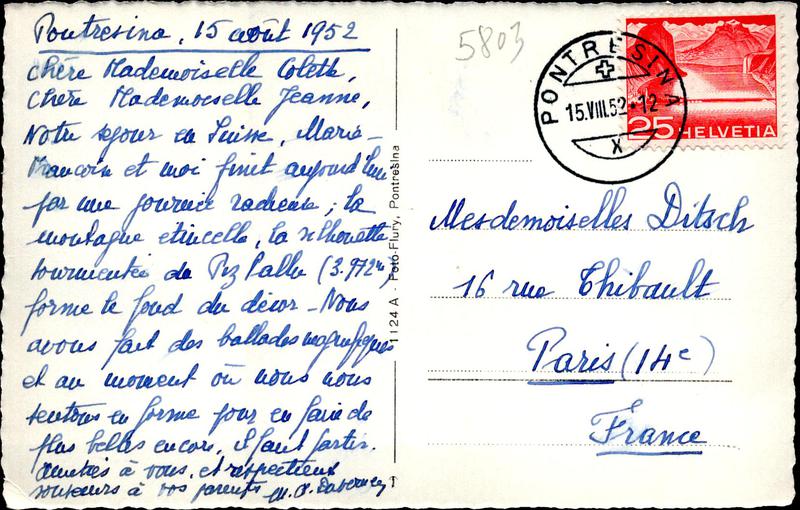 Pontresina, 15 août 1952
Chère Mademoiselle Colette,
Chère Mademoiselle Jeanne,
Notre séjour en Suisse, Marie-
Françoise et moi finit aujourd'hui
par une journée radieuse ; la
montagne étincelle, la silhouette
tourmentée du Piz Pallu (3.912m)
forme le fond du décor - Nous
avons fait des ballades magnifiques
et au moment où nous nous
sentons en forme pour en faire de
plus belles encore, il faut partir.
Amitiés à vous, et respectueux
souvenirs à vos parents M. A.
1124 A - Foto-Flury, Pontresina
5803
PONTRESINA
15.VIII.52-12
X
25 HELVETIA
Mesdemoiselles Ditsch
16 rue Thibault
Paris (14e)
France